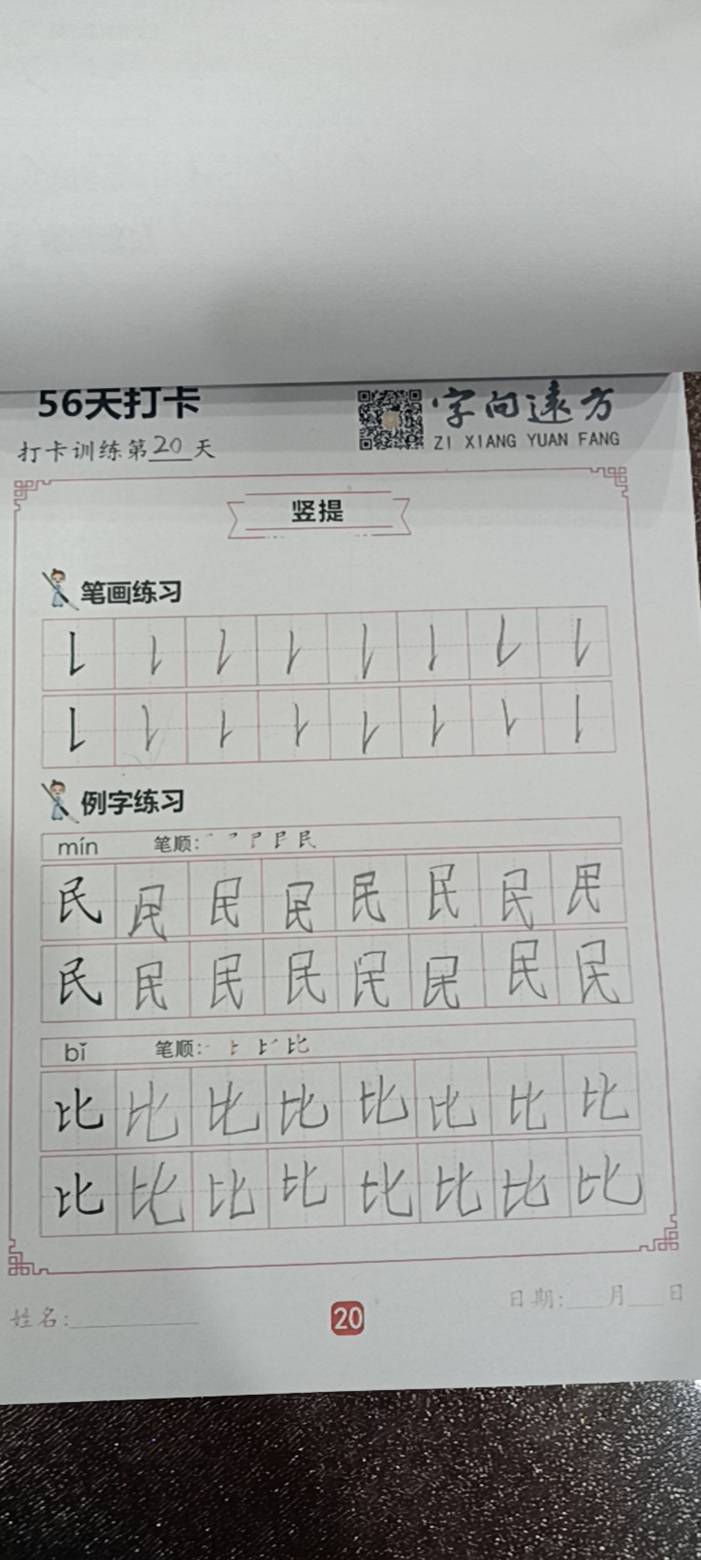 56天打卡
字向远方
ZI XIANG YUAN FANG
打卡训练第20天
竖提
笔画练习
例字练习
mín 笔顺:
民 民 民 民 民 民 民 民
民 民 民 民 民 民 民 民
bǐ 笔顺:
比 比 比 比 比 比 比 比
比 比 比 比 比 比 比 比
姓名: 20 日期: 月 日